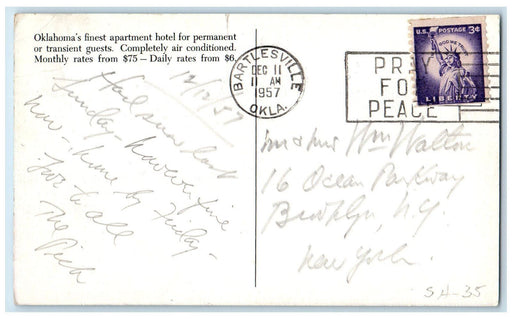 Oklahoma's finest apartment hotel for permanent
or transient guests. Completely air conditioned.
Monthly rates from $75 — Daily rates from $6.
BARTLESVILLE
DEC 11
11 AM
1957
OKLA.
PRAY
FOR
PEACE
U.S. POSTAGE 3¢
IN GOD WE TRUST
LIBERTY
12/12/57
Had snow last
Sunday - however fine
now - home by Friday -
Love to all
The
Mr & Mrs Wm Walton
16 Ocean Parkway
Brooklyn, N.Y.
New York.
SH-35